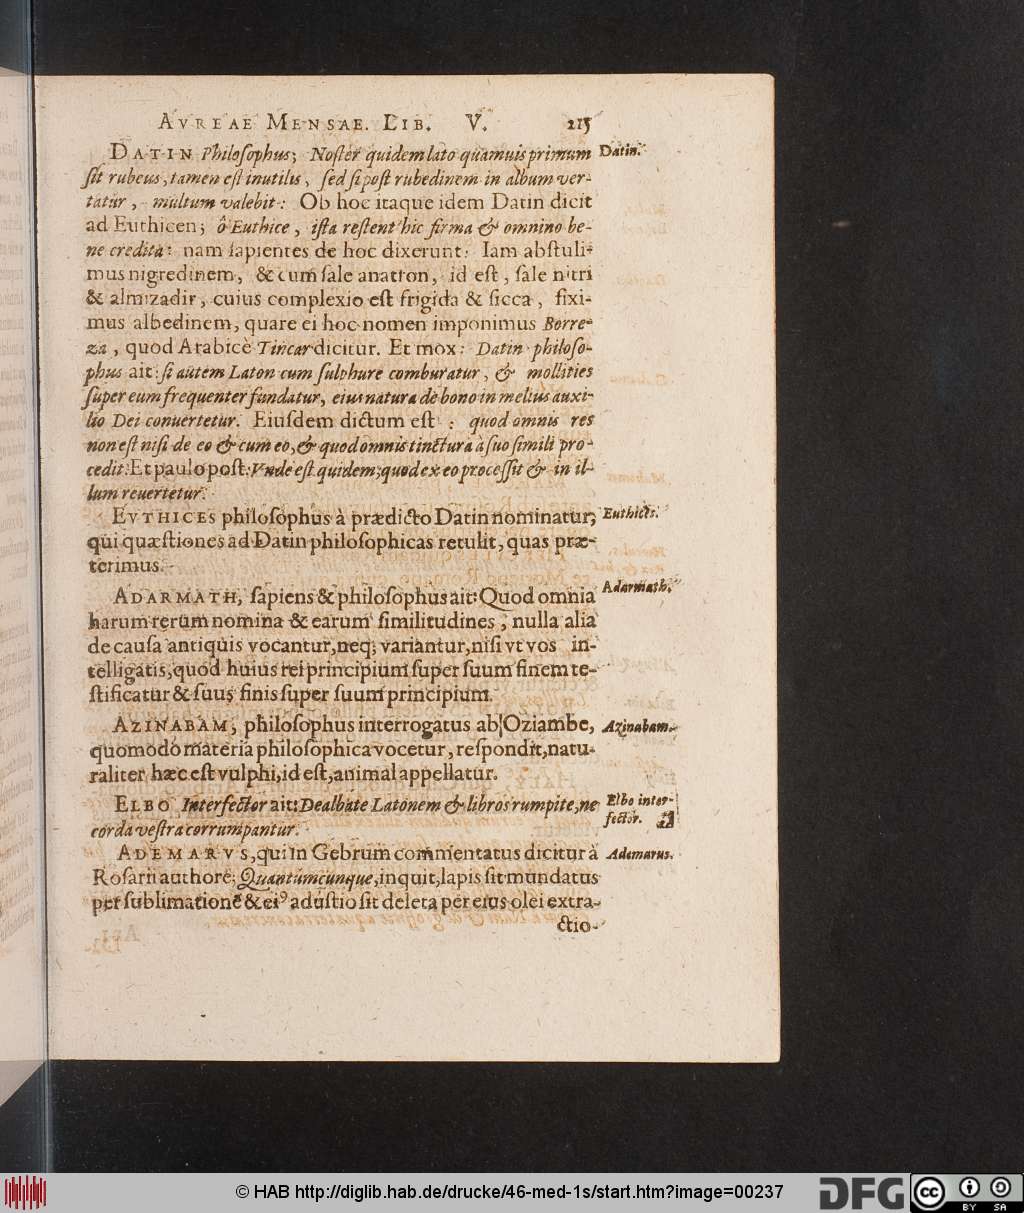 AVREAE MENSAE. LIB. V. 215
DATIN Philosophus; Noster quidem lato quamuis primum Datin.
sit rubeus, tamen est inutilis, sed si post rubedinem in album ver-
tatur, multum valebit: Ob hoc itaque idem Datin dicit
ad Euthicen; ô Euthice, ista restent hic firma & omnino be-
ne credita: nam sapientes de hoc dixerunt: Iam abstuli-
mus nigredinem, & cum sale anatron, id est, sale nitri
& almizadir, cuius complexio est frigida & sicca, fixi-
mus albedinem, quare ei hoc nomen imponimus Borre-
za, quod Arabicè Tincar dicitur. Et mox: Datin philoso-
phus ait: si autem Laton cum sulphure comburatur, & mollities
super eum frequenter fundatur, eius natura de bono in melius auxi-
lio Dei conuertetur. Eiusdem dictum est: quod omnis res
non est nisi de eo & cum eo, & quod omnis tinctura à suo simili pro-
cedit: Et paulo post: Vnde est quidem; quod ex eo processit & in il-
lum reuertetur.
EVTHICES philosophus à prædicto Datin nominatur, Euthices.
qui quæstiones ad Datin philosophicas retulit, quas præ-
terimus.
ADARMATH, sapiens & philosophus ait: Quod omnia Adarmath.
harum rerum nomina & earum similitudines, nulla alia
de causa antiquis vocantur, neq; variantur, nisi vt vos in-
telligatis, quod huius rei principium super suum finem te-
stificatur & suus finis super suum principium.
AZINABAM, philosophus interrogatus ab Oziambe, Azinabam.
quomodo materia philosophica vocetur, respondit, natu-
raliter hæc est vulphi, id est, animal appellatur.
ELBO Interfector ait: Dealbate Latonem & libros rumpite, ne Elbo inter-
corda vestra corrumpantur. fector.
ADEMARVS, qui in Gebrum commentatus dicitur à Ademarus.
Rosarii authore; Quantumcunque, inquit, lapis sit mundatus
per sublimationē & eiꝰ adustio sit deleta per eius olei extra-
ctio-
© HAB http://diglib.hab.de/drucke/46-med-1s/start.htm?image=00237
DFG
cc BY SA